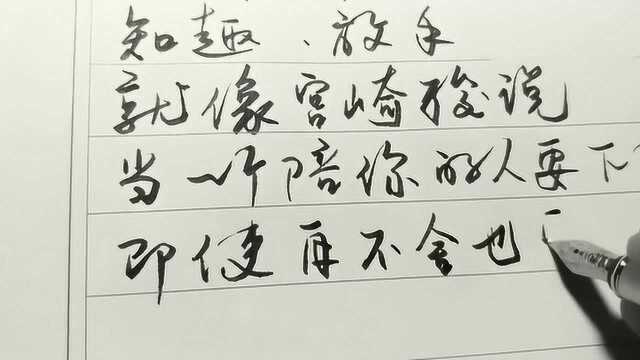 知趣、放手
就像宫崎骏说
当一个陪你的人要下
即使再不舍也